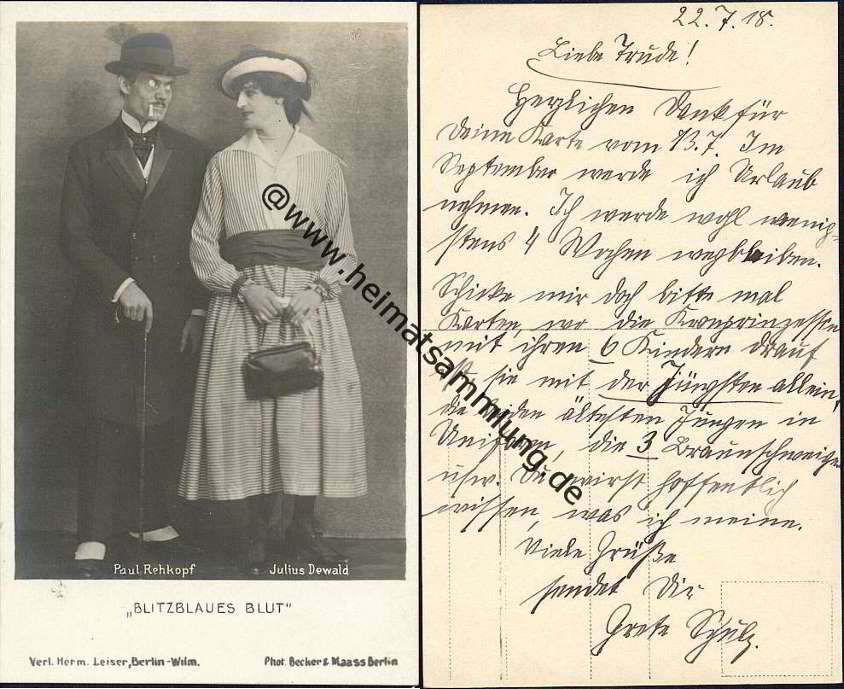 Paul Rehkopf
Julius Dewald
„BLITZBLAUES BLUT"
Verl. Herm. Leiser, Berlin-Wilm.
Phot. Becker & Maass Berlin
@www.heimatsammlung.de
22.7.18.
Liebe Trude!
Herzlichen Dank für
Deine Karte vom 13.7. Im
September werde ich Urlaub
nehmen. Ich werde wohl wenig-
stens 4 Wochen wegbleiben.
Schicke mir doch bitte mal
Karten, wo die Kronprinzessin
mit ihren 6 Kindern drauf
ist, sie mit der Jüngsten allein,
die beiden ältesten Jungen in
Uniform, die 3 Braunschweiger
usw. Du wirst hoffentlich
wissen, was ich meine.
Viele Grüße
sendet Dir
Grete Schulz.